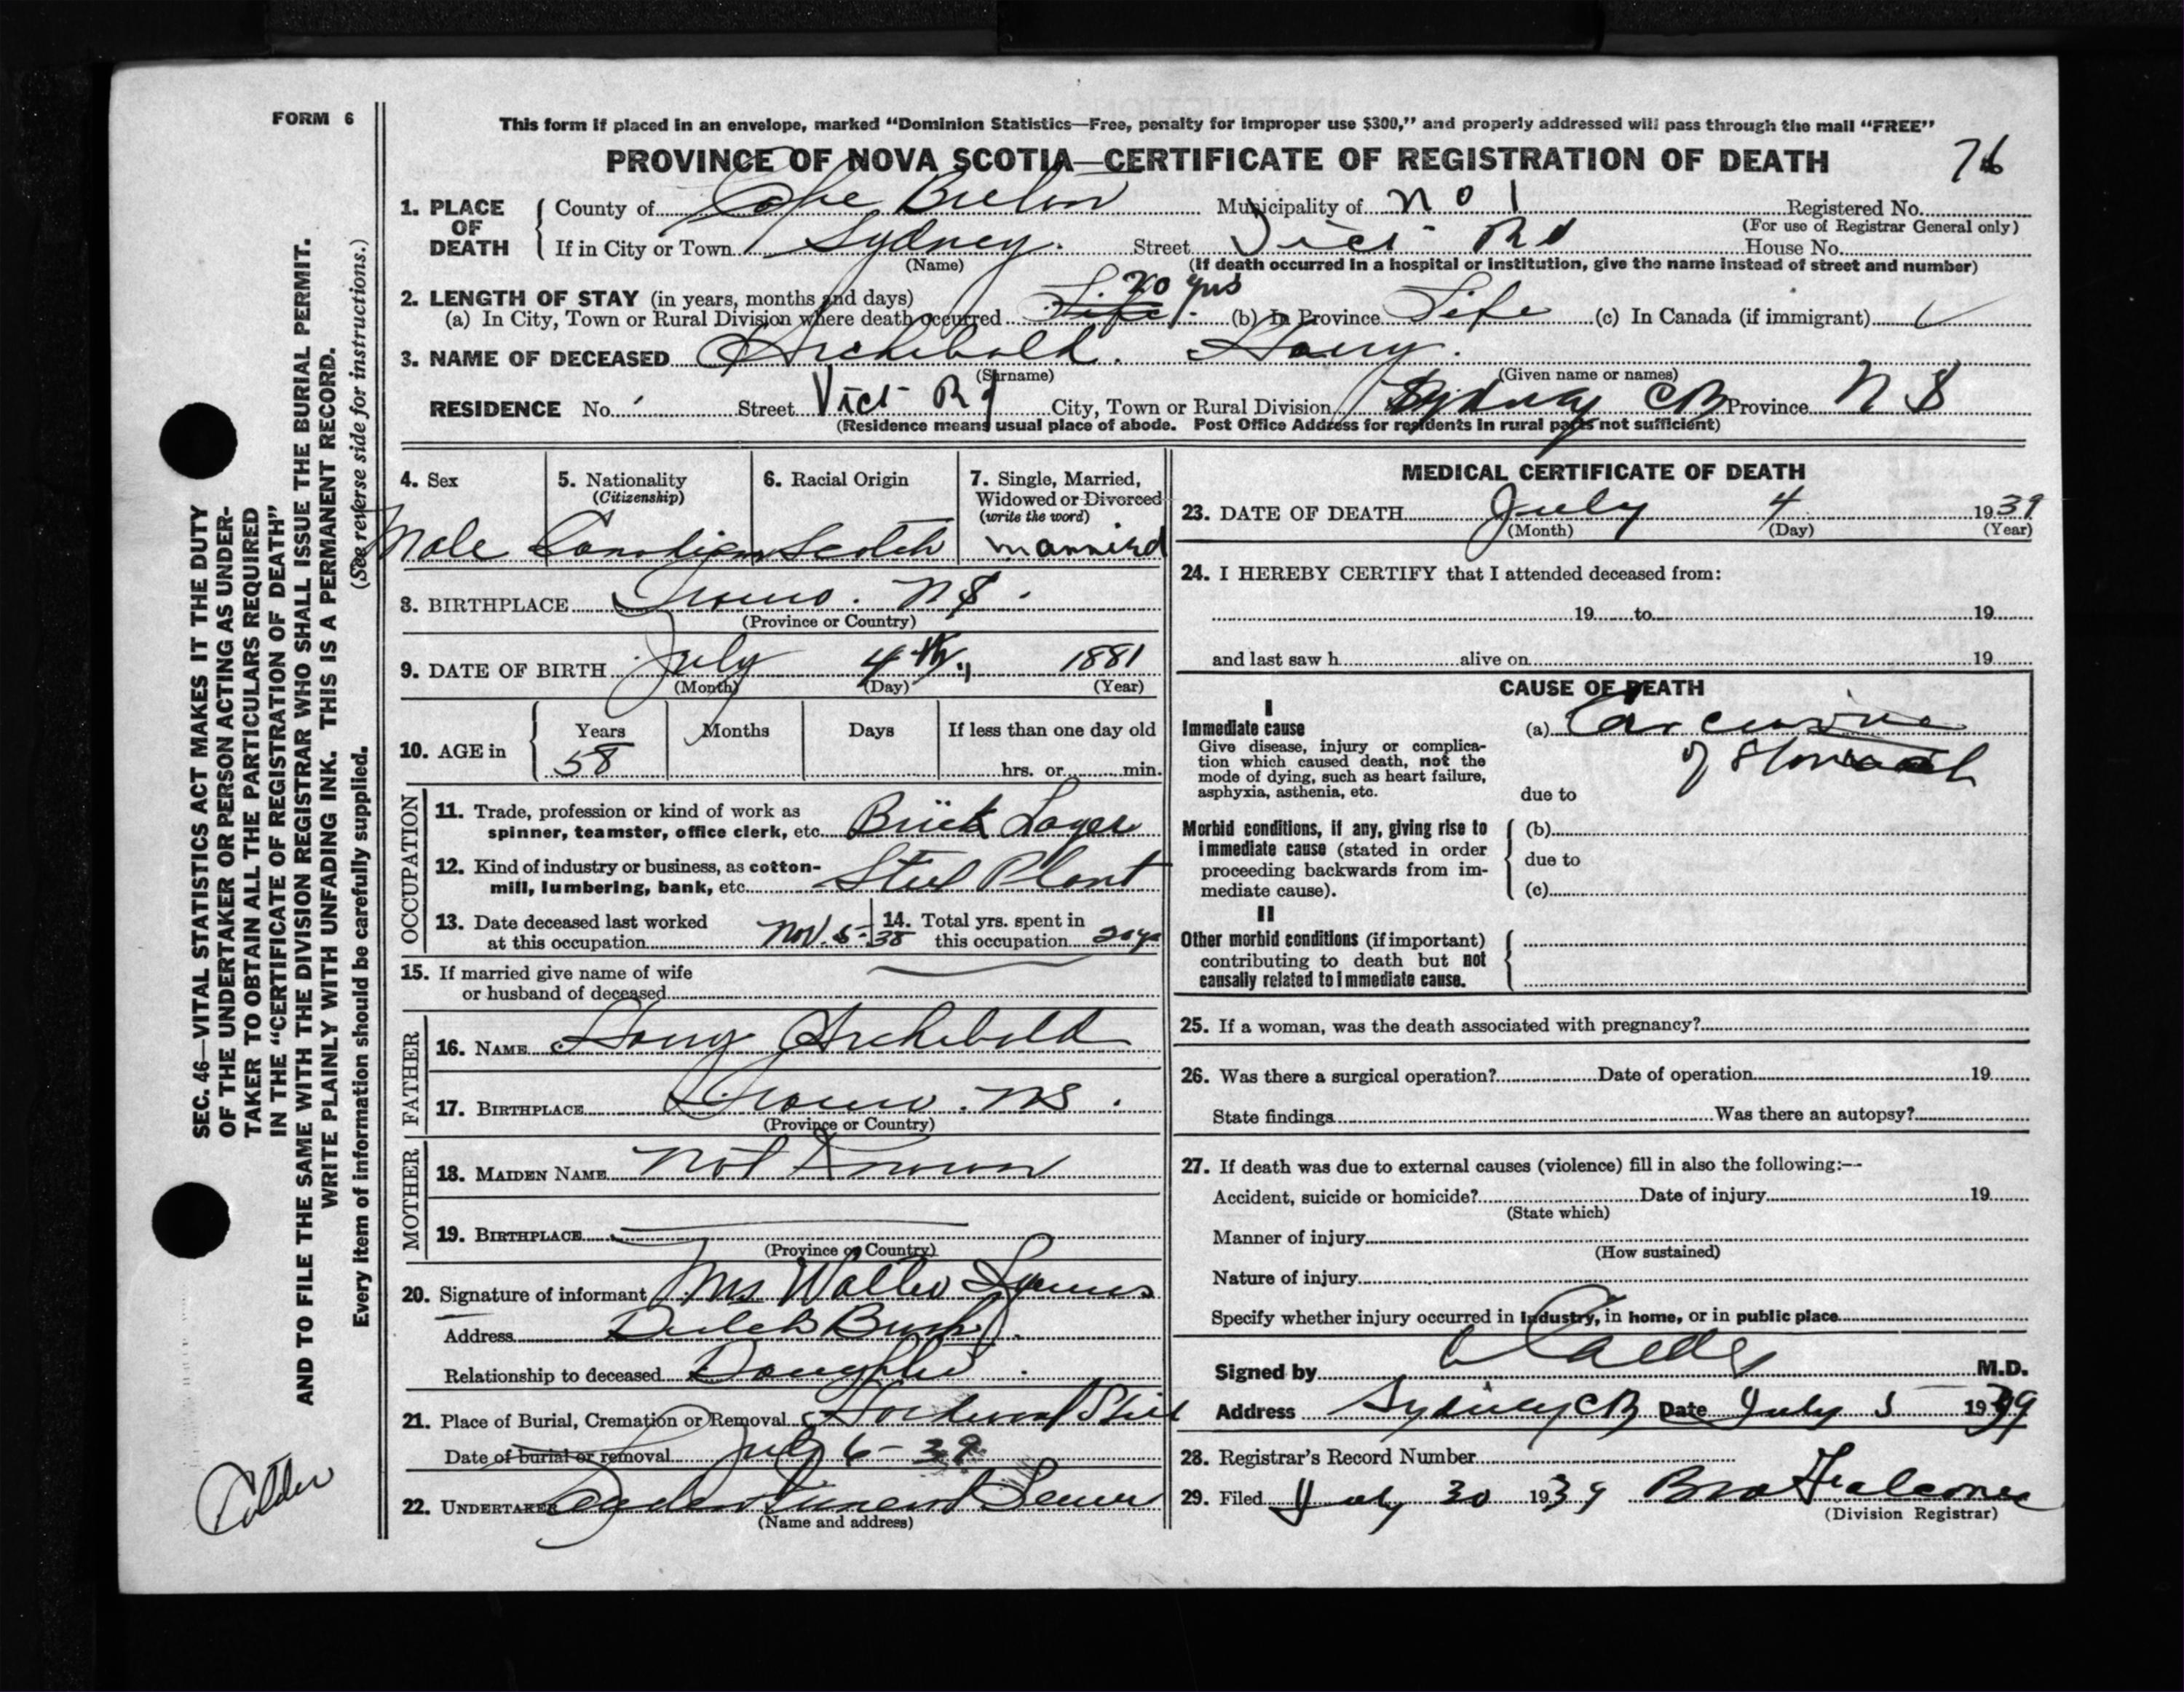 FORM 6
This form if placed in an envelope, marked "Dominion Statistics—Free, penalty for improper use $300," and properly addressed will pass through the mail "FREE"
PROVINCE OF NOVA SCOTIA—CERTIFICATE OF REGISTRATION OF DEATH
76
1. PLACE OF DEATH
County of Cape Breton Municipality of No 1 Registered No.
(For use of Registrar General only)
If in City or Town Sydney. Street Vict Rd House No.
(Name) (If death occurred in a hospital or institution, give the name instead of street and number)
2. LENGTH OF STAY (in years, months and days) 20 yrs
(a) In City, Town or Rural Division where death occurred Life. (b) In Province Life (c) In Canada (if immigrant)
3. NAME OF DECEASED Archibald. Harry.
(Surname) (Given name or names)
RESIDENCE No. Street Vict Rd City, Town or Rural Division Sydney CB Province N S
(Residence means usual place of abode. Post Office Address for residents in rural parts not sufficient)
4. Sex
Male
5. Nationality
(Citizenship)
Canadian
6. Racial Origin
Scotch
7. Single, Married,
Widowed or Divorced
(write the word)
Married
8. BIRTHPLACE Truro. NS.
(Province or Country)
9. DATE OF BIRTH July 4th, 1881
(Month) (Day) (Year)
10. AGE in
Years Months Days If less than one day old
58 hrs. or min.
OCCUPATION
11. Trade, profession or kind of work as
spinner, teamster, office clerk, etc. Brick Layer
12. Kind of industry or business, as cotton-
mill, lumbering, bank, etc. Steel Plant
13. Date deceased last worked
at this occupation Nov. 5-38
14. Total yrs. spent in
this occupation 20 yrs
15. If married give name of wife
or husband of deceased
FATHER
16. NAME Harry Archibald
17. BIRTHPLACE Truro. NS.
(Province or Country)
MOTHER
18. MAIDEN NAME Not Known
19. BIRTHPLACE
(Province or Country)
20. Signature of informant Mrs Walter
Address Dutch Brook.
Relationship to deceased Daughter.
21. Place of Burial, Cremation or Removal
Date of burial or removal July 6-39
22. UNDERTAKER Funeral
(Name and address)
MEDICAL CERTIFICATE OF DEATH
23. DATE OF DEATH July 4 1939
(Month) (Day) (Year)
24. I HEREBY CERTIFY that I attended deceased from:
19 to 19
and last saw h alive on 19
CAUSE OF DEATH
I
Immediate cause
Give disease, injury or complica-
tion which caused death, not the
mode of dying, such as heart failure,
asphyxia, asthenia, etc.
(a) Carcinoma
of Stomach
due to
Morbid conditions, if any, giving rise to
immediate cause (stated in order
proceeding backwards from im-
mediate cause).
(b)
due to
(c)
II
Other morbid conditions (if important)
contributing to death but not
causally related to immediate cause.
25. If a woman, was the death associated with pregnancy?
26. Was there a surgical operation? Date of operation 19
State findings Was there an autopsy?
27. If death was due to external causes (violence) fill in also the following:—
Accident, suicide or homicide? Date of injury 19
(State which)
Manner of injury
(How sustained)
Nature of injury
Specify whether injury occurred in industry, in home, or in public place
Signed by M.D.
Address Sydney CB Date July 5 1939
28. Registrar's Record Number
29. Filed July 30 1939
(Division Registrar)
SEC. 46—VITAL STATISTICS ACT MAKES IT THE DUTY
OF THE UNDERTAKER OR PERSON ACTING AS UNDER-
TAKER TO OBTAIN ALL THE PARTICULARS REQUIRED
IN THE "CERTIFICATE OF REGISTRATION OF DEATH"
AND TO FILE THE SAME WITH THE DIVISION REGISTRAR WHO SHALL ISSUE THE BURIAL PERMIT.
WRITE PLAINLY WITH UNFADING INK. THIS IS A PERMANENT RECORD.
Every item of information should be carefully supplied. (See reverse side for instructions.)